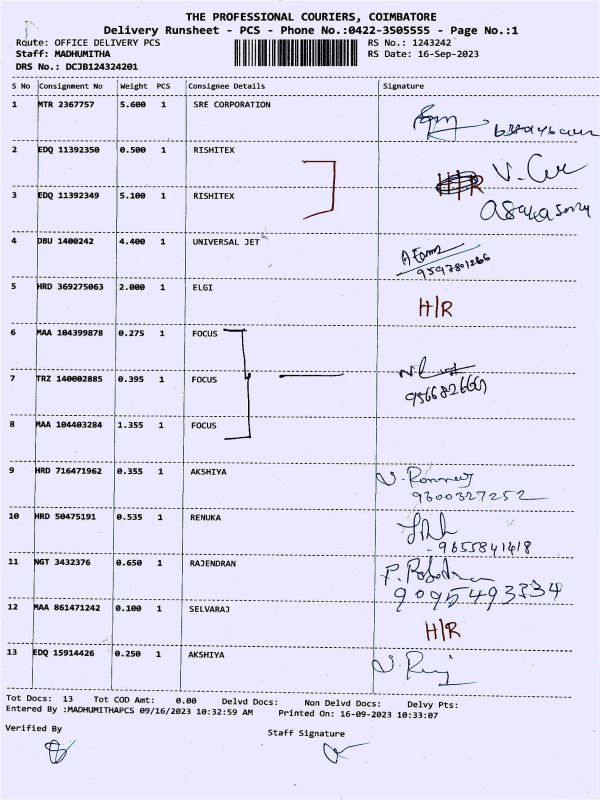 THE PROFESSIONAL COURIERS, COIMBATORE
Delivery Runsheet - PCS - Phone No.:0422-3505555 - Page No.:1
Route: OFFICE DELIVERY PCS RS No.: 1243242
Staff: MADHUMITHA RS Date: 16-Sep-2023
DRS No.: DCJB124324201
S No Consignment No Weight PCS Consignee Details Signature
1 MTR 2367757 5.600 1 SRE CORPORATION
2 EDQ 11392350 0.500 1 RISHITEX H/R
3 EDQ 11392349 5.100 1 RISHITEX
4 DBU 1400242 4.400 1 UNIVERSAL JET
9597801266
5 HRD 369275063 2.000 1 ELGI
H/R
6 MAA 104399878 0.275 1 FOCUS
7 TRZ 140002885 0.395 1 FOCUS
8 MAA 104403284 1.355 1 FOCUS
9 HRD 716471962 0.355 1 AKSHIYA
9300327252
10 HRD 50475191 0.535 1 RENUKA
- 9655841418
11 NGT 3432376 0.650 1 RAJENDRAN
9095493334
12 MAA 861471242 0.100 1 SELVARAJ
H/R
13 EDQ 15914426 0.250 1 AKSHIYA
Tot Docs: 13 Tot COD Amt: 0.00 Delvd Docs: Non Delvd Docs: Delvy Pts:
Entered By :MADHUMITHAPCS 09/16/2023 10:32:59 AM Printed On: 16-09-2023 10:33:07
Verified By
Staff Signature